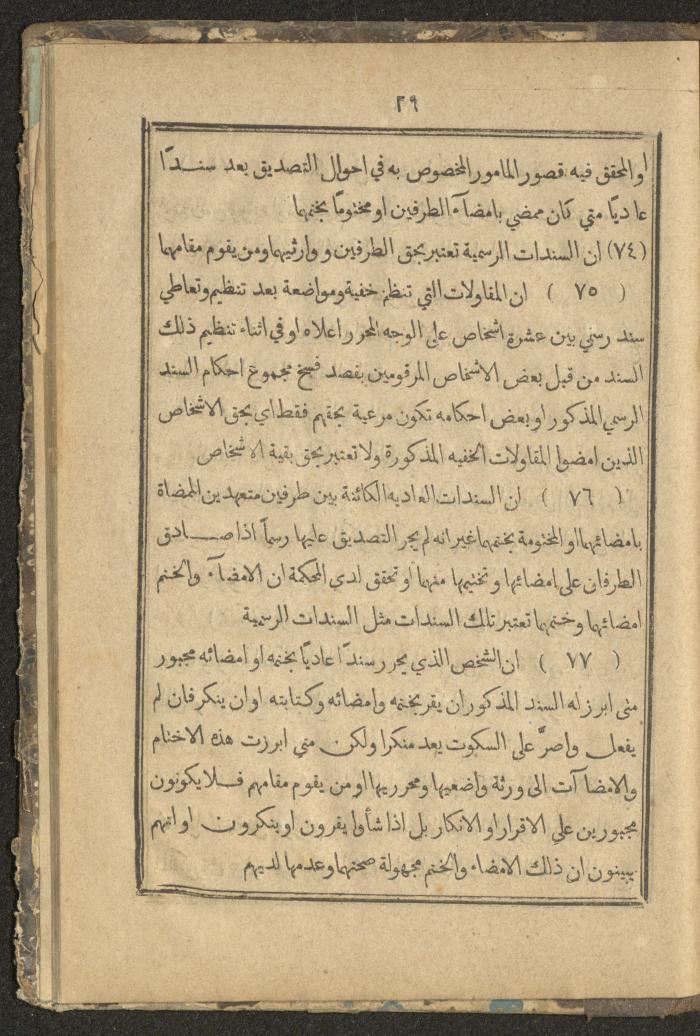 ٢٩
او المحقق فيه قصور المامور المخصوص به في احوال التصديق يعد سندًا
عاديًا متي كان ممضي بامضآء الطرفين او مختومًا بختمهما
(٧٤) ان السندات الرسمية تعتبر بحق الطرفين و وارثيهما ومن يقوم مقامهما
( ٧٥ ) ان المقاولات التي تنظم خفية ومواضعة بعد تنظيم وتعاطي
سند رسمي بين عشرة اشخاص على الوجه المحرر اعلاه او في اثناء تنظيم ذلك
السند من قبل بعض الاشخاص المرقومين بقصد فسخ مجموع احكام السند
الرسمي المذكور او بعض احكامه تكون مرعية بحقهم فقط اي بحق الاشخاص
الذين امضوا المقاولات الخفيه المذكورة ولا تعتبر بحق بقية الاشخاص
( ٧٦ ) ان السندات العاديه الكائنة بين طرفين متعهدين الممضاة
بامضائهما او المختومة بختمهما غير انه لم يجر التصديق عليها رسمآ اذا صادق
الطرفان على امضائها و تختيمها منهما او تحقق لدي المحكمة ان الامضآء والختم
امضائهما وختمهما تعتبر تلك السندات مثل السندات الرسمية
( ٧٧ ) ان الشخص الذي يحرر سندًا عاديًا بختمه او امضائه مجبور
متى ابرز له السند المذكور ان يقر بختمه وامضائه وكتابته او ان ينكر فان لم
يفعل واصرَّ على السكوت يعد منكرا ولكن متي ابرزت هذه الاختام
والامضاآت الى ورثة واضعيها ومحرريها او من يقوم مقامهم فلا يكونون
مجبورين علي الاقرار او الانكار بل اذا شأوا يقرون او ينكرون او انهم
يبينون ان ذلك الامضاء والختم مجهولة صحتهما وعدمها لديهم